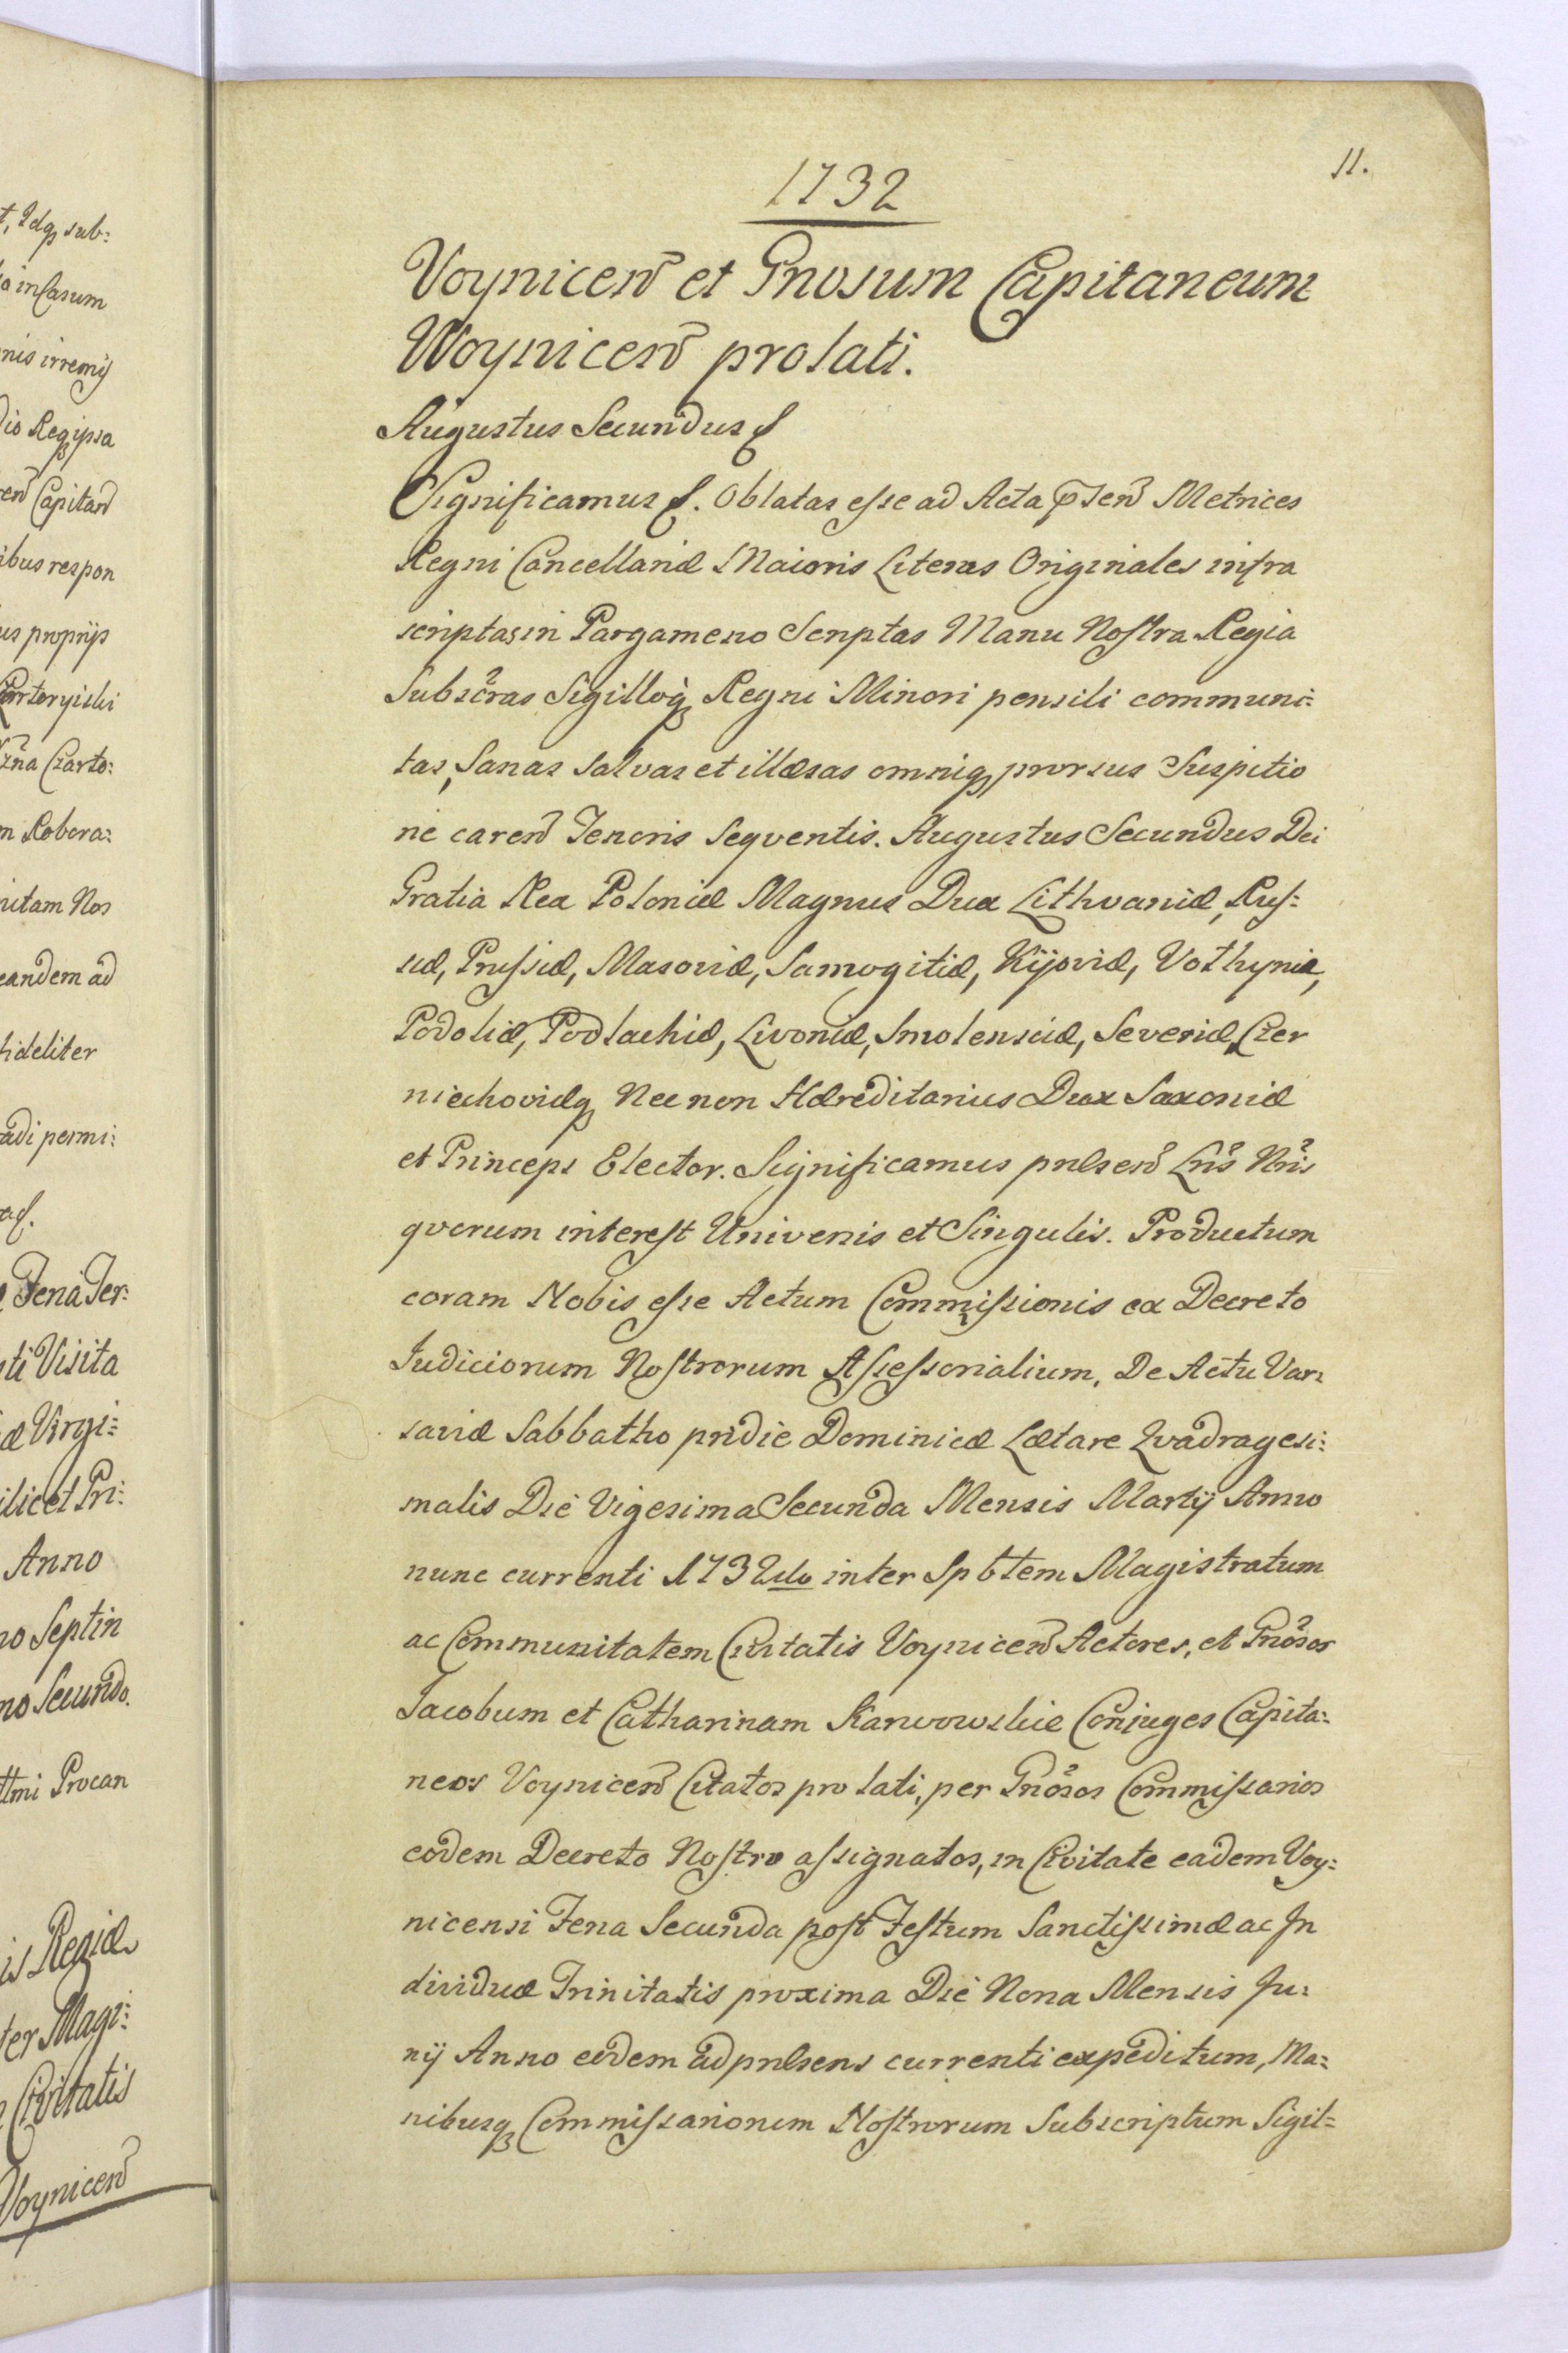 11.
1732
Voynicen̄ et Gnosum Capitaneum
Woynicen̄ prolati.
Augustus Secundus
Significamus Oblatas eſse ad Acta Metrices
Regni Cancellariæ Maioris Literas Originales infra
scriptas in Pargameno Scriptas Manu Noſtra Regia
Subscras Sigilloq Regni Minori pensili communi:
tas, Sanas salvas et illæsas omniq prorsus Suspitio
ne caren̄ Tenoris Seqventis. Augustus Secundus Dei
Gratia Rex Poloniæ Magnus Dux Lithvaniæ, Ruſ:
siæ, Pruſsiæ, Masoviæ, Samogitiæ, Kijoviæ, Volhyniæ,
Podoliæ, Podlachiæ, Livoniæ, Smolensciæ, Severiæ, Czer
niechoviæq Nec non Hæreditarius Dux Saxoniæ
et Princeps Elector. Significamus pnlsen̄ Lris Nris
qvorum intereſt Univenis et Singulis. Productum
coram Nobis eſse Actum Commiſsionis ex Decreto
Iudiciorum Noſtrorum Aſseſsorialium, De Actu Var:
saviæ Sabbatho pridie Dominicæ Lætare Qvadragesi:
malis Die Vigesima Secunda Mensis Martij Anno
nunc currenti 1732do inter Spbtem Magistratum
ac Communitatem Civitatis Voynicen̄ Actores, et Gnosos
Iacobum et Catharinam Karwowskie Conjuges Capita:
neos Voynicen̄ Citatos prolati, per Gnosos Commiſsarios
eodem Decreto Noſtro aſsignatos, in Civitate eadem Voy:
nicensi Feria Secunda poſt Feſtum Sanctiſsimæ ac In
dividuæ Trinitatis proxima Die Nona Mensis Ju:
nij Anno eodem ad pnlsens currenti expeditum, Ma:
nibusq Commiſsariorum Noſtrorum Subscriptum Sigil=